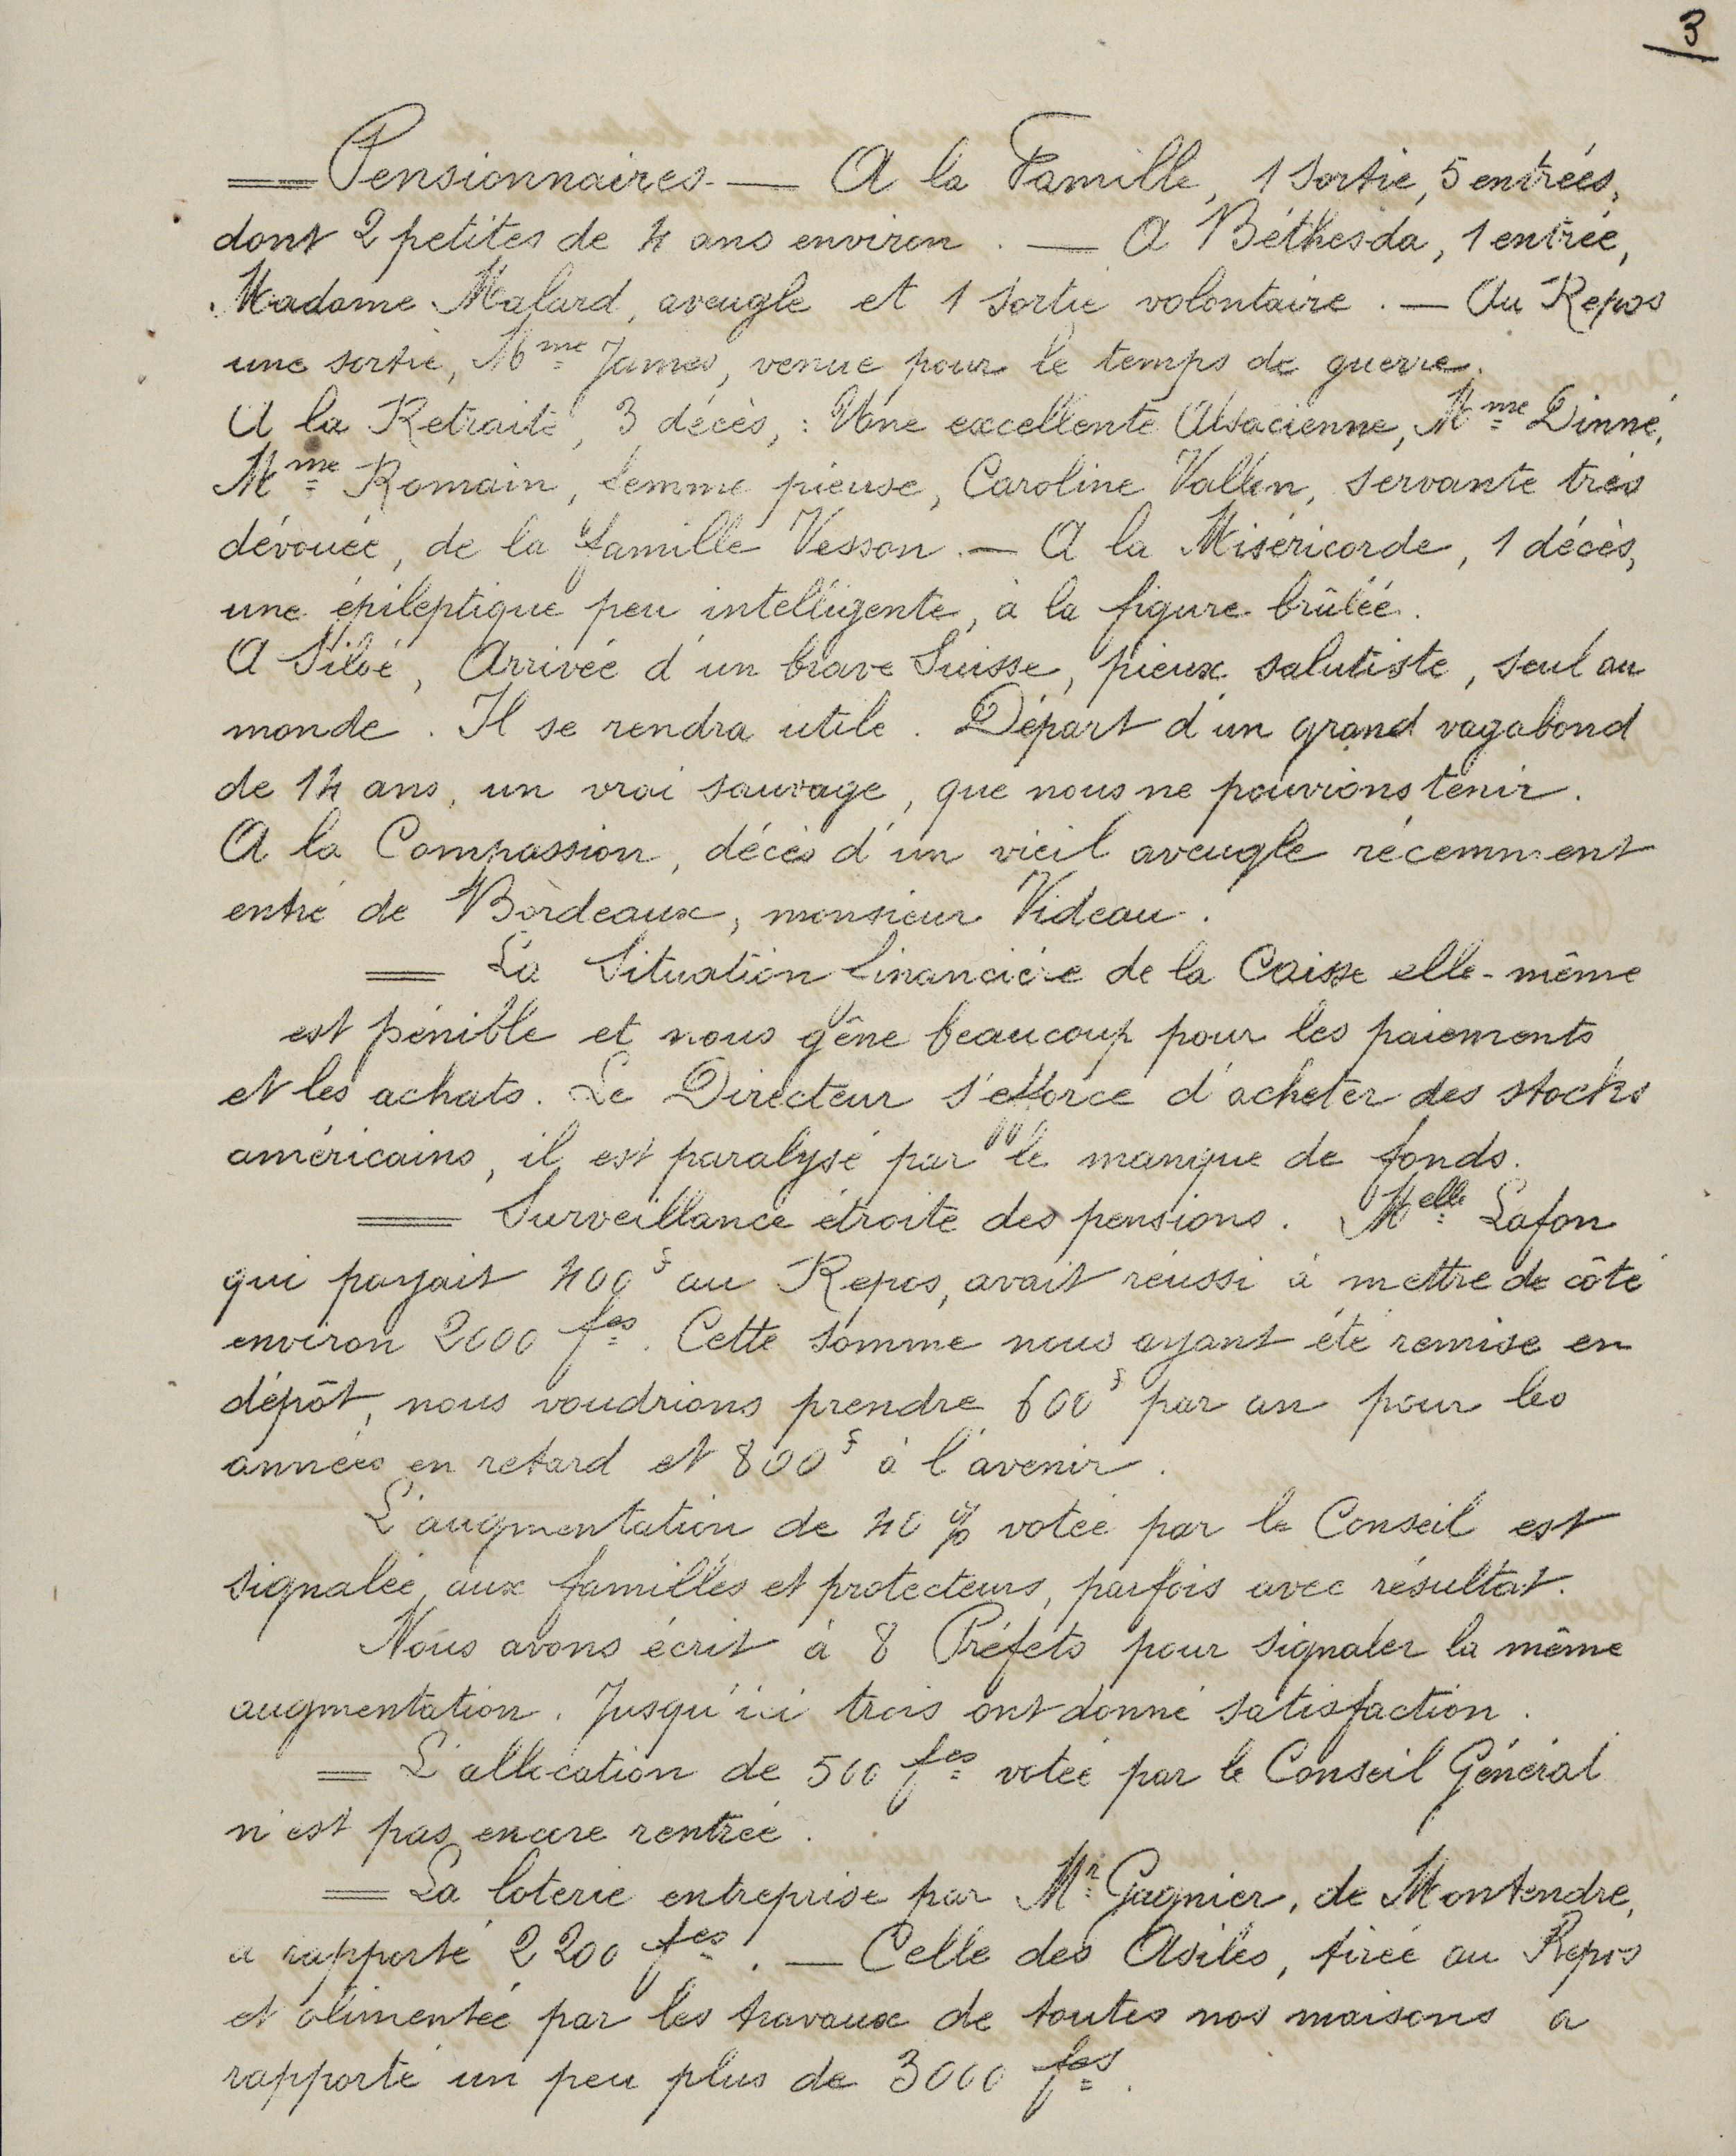 3
= Pensionnaires. — A la Famille, 1 sortie, 5 entrées,
dont 2 petites de 4 ans environ. — A Béthesda, 1 entrée,
Madame Malard, aveugle et 1 sortie volontaire. — Au Repos
une sortie, Mme James, venue pour le temps de guerre.
A la Retraite, 3 décès, : Une excellente Alsacienne, Mme Dinné,
Mme Romain, femme pieuse, Caroline Vallen, servante très
dévouée, de la famille Vesson. — A la Miséricorde, 1 décès,
une épileptique peu intelligente, à la figure brûlée.
A Siloé, Arrivée d'un brave Suisse, pieux salutiste, seul au
monde. Il se rendra utile. Départ d'un grand vagabond
de 14 ans, un vrai sauvage, que nous ne pouvions tenir.
A la Compassion, décès d'un vieil aveugle récemment
entré de Bordeaux, monsieur Videau.
= La Situation financière de la Caisse elle-même
est pénible et nous gêne beaucoup pour les paiements
et les achats. Le Directeur s'efforce d'acheter des stocks
américains, il est paralysé par le manque de fonds.
= Surveillance étroite des pensions. Melle Lafon
qui payait 400f au Repos, avait réussi à mettre de côté
environ 2000 fcs. Cette somme nous ayant été remise en
dépôt, nous voudrions prendre 600f par an pour les
années en retard et 800f à l'avenir.
L'augmentation de 40 % votée par le Conseil est
signalée, aux familles et protecteurs, parfois avec résultat.
Nous avons écrit à 8 Préfets pour signaler la même
augmentation. Jusqu'ici trois ont donné satisfaction.
= L'allocation de 500 fcs votée par le Conseil Général
n'est pas encore rentrée.
= La loterie entreprise par Mr Gagnier, de Montendre,
a rapporté 2200 fcs. — Celle des Asiles, tirée au Repos
et alimentée par les travaux de toutes nos maisons a
rapporté un peu plus de 3000 fcs.